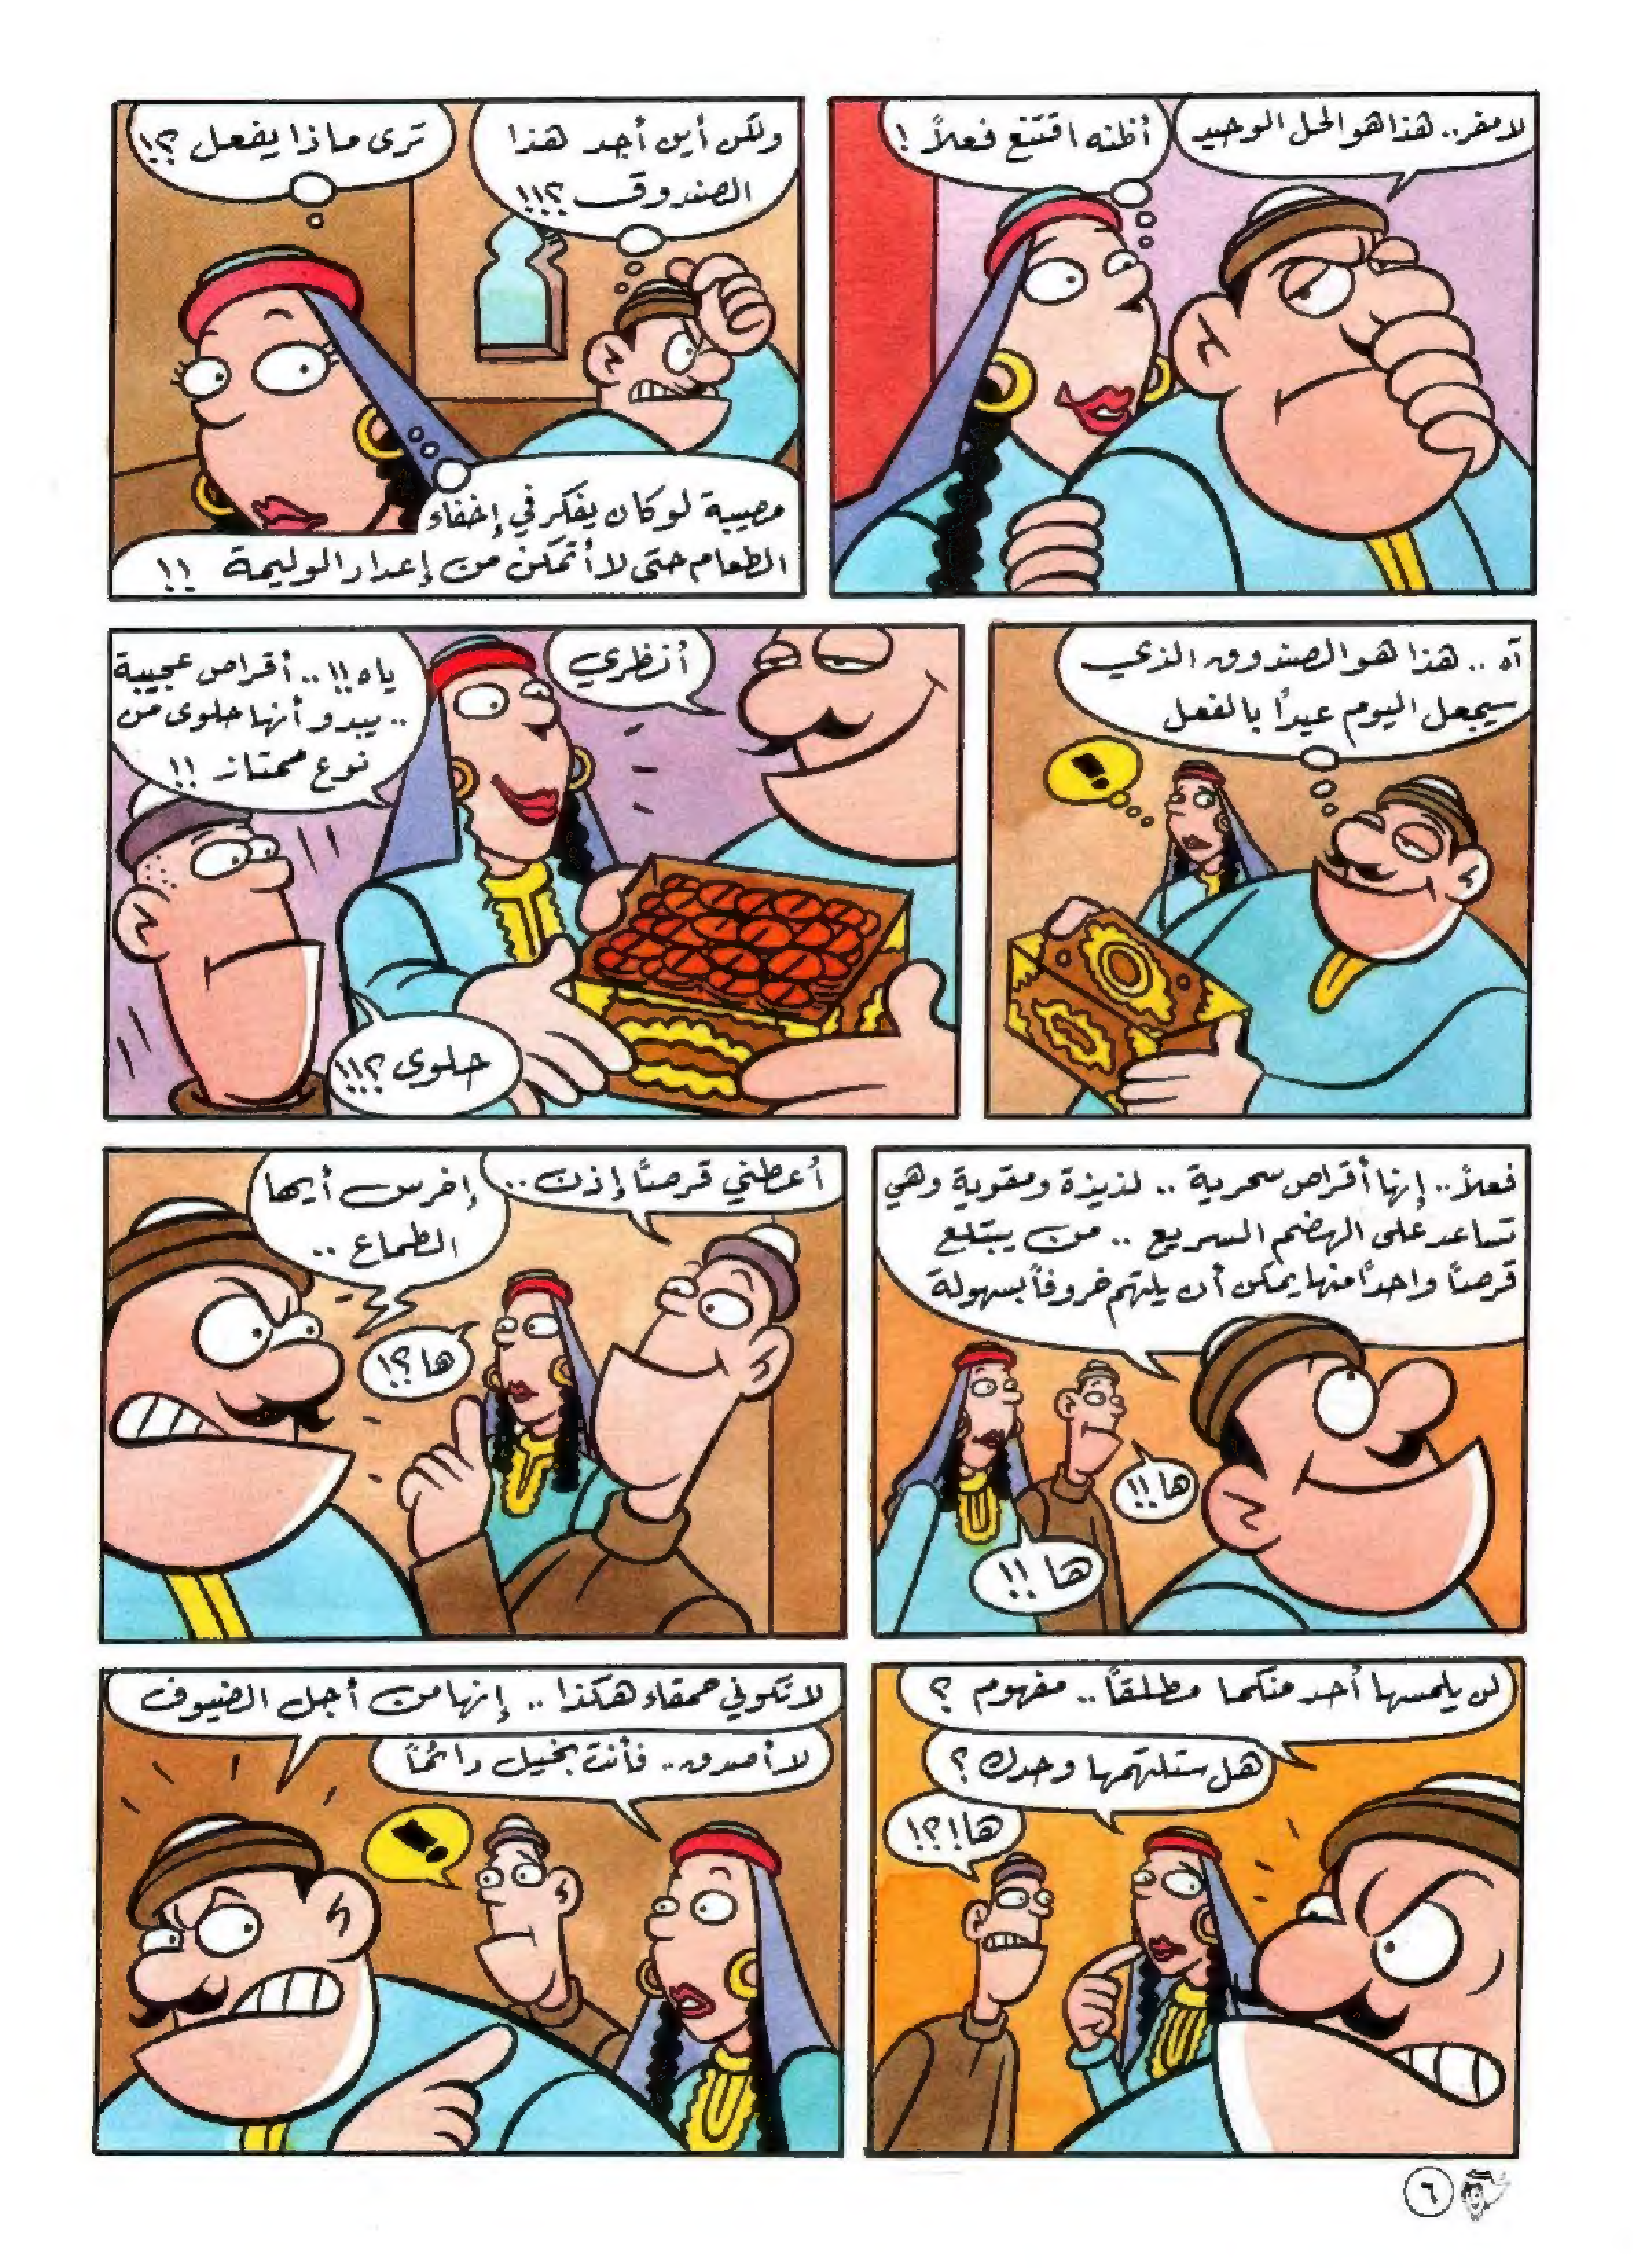 لا مفر.. هذا هو الحل الوحيد
أظنه اقتنع فعلاً !
ولكن أين أجد هذا
الصندوق ؟!!!
ترى ماذا يفعل ؟!
مصيبة لو كان يفكر في إخفاء
الطعام حتى لا أتمكن من إعداد الوليمة !!
آه .. هذا هو الصندوق الذي
سيجعل اليوم عيدًا بالفعل
!
أنظري
ياه !! .. أقراص عجيبة
.. يبدو أنها حلوى من
نوع ممتاز !!
حلوى ؟!!!
فعلاً .. إنها أقراص سحرية .. لذيذة ومقوية وهي
تساعد على الهضم السريع .. من يبتلع
قرصًا واحدًا منها يمكن أن يلتهم خروفًا بسهولة
ها !!
ها !!
أعطني قرصًا إذن ..
إخرس أيها
الطماع ..
ها ؟!
لن يلمسها أحد منكما مطلقًا .. مفهوم ؟
هل ستلتهمها وحدك ؟
ها !؟!
لا تكوني حمقاء هكذا .. إنها من أجل الضيوف
لا أصدق .. فأنت بخيل دائمًا
!
٦